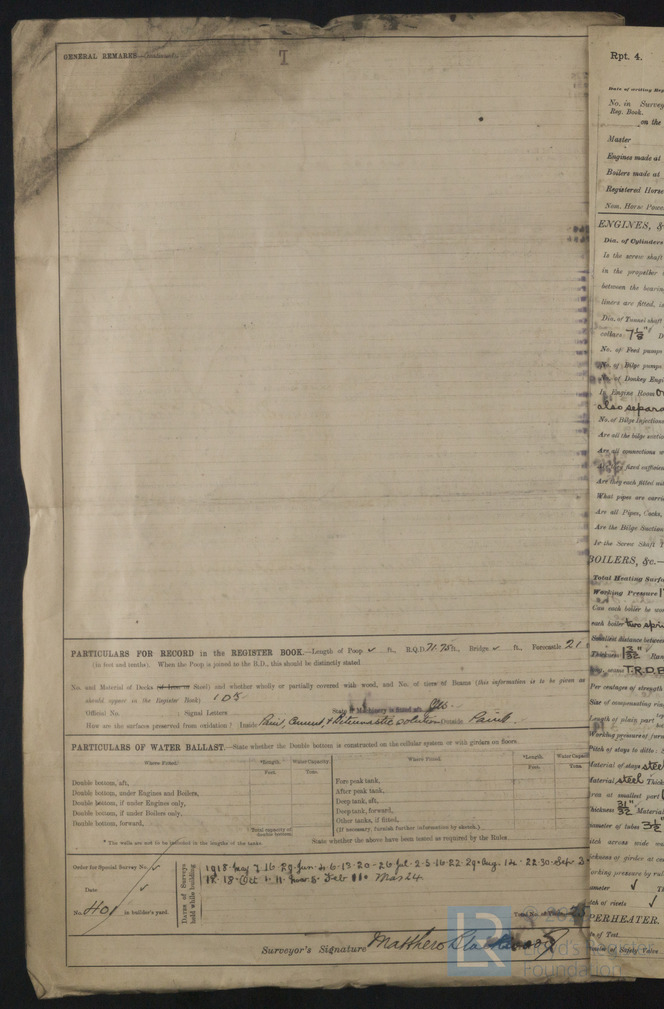 GENERAL REMARKS—(continued).
PARTICULARS FOR RECORD in the REGISTER BOOK.—Length of Poop ✓ ft., R.Q.D. 71.75 ft., Bridge ✓ ft., Forecastle 21.
(in feet and tenths). When the Poop is joined to the B.D., this should be distinctly stated
No. and Material of Decks (if Iron or Steel) and whether wholly or partially covered with wood, and No. of tiers of Beams (this information is to be given as
should appear in the Register Book) 1 D S
Official No. ; Signal Letters State if Machinery is fitted aft Yes
How are the surfaces preserved from oxidation? Inside Paint, Cement, & Bitumastic solution Outside Paint.
PARTICULARS OF WATER BALLAST.—State whether the Double bottom is constructed on the cellular system or with girders on floors.
Where Fitted. *Length. Water Capacity. Where Fitted. *Length. Water Capacity
Feet. Tons. Feet. Tons.
Double bottom, aft, Fore peak tank,
Double bottom, under Engines and Boilers, After peak tank,
Double bottom, if under Engines only, Deep tank, aft,
Double bottom, if under Boilers only, Deep tank, forward,
Double bottom, forward, Other tanks, if fitted,
Total capacity of double bottom (If necessary, furnish further information by sketch.)
* The wells are not to be included in the lengths of the tanks. State whether the above have been tested as required by the Rules
Order for Special Survey No. ✓
Date ✓
No. 401 in builder's yard.
Dates of Surveys held while building
1918. May 7. 16. 29. Jun. 4. 6. 13. 20. 26 Jul. 2. 5. 16. 22. 29. Aug. 14. 22. 30. Sep. 3.
12. 18. Oct 1. 11. Feb 11. Mar 24.
Total No. of Visits 25
Surveyor's Signature Matthew Blackwood
Rpt. 4.
No. in Survey
Reg. Book.
on the
Master
Engines made at
Boilers made at
Registered Horse
Nom. Horse Power
ENGINES, &
Dia. of Cylinders
Is the screw shaft
in the propeller
between the bearin
liners are fitted, is
Dia. of Tunnel shaft
collars 7 1/8" D
No. of Feed pumps
No. of Bilge pumps
of Donkey Engi
In Engine Room
also separa
No. of Bilge Injections
Are all the bilge suction
Are all connections w
fixed sufficien
Are they each fitted wi
What pipes are carri
Are all Pipes, Cocks,
Are the Bilge Suction
Is the Screw Shaft T
BOILERS, &c.—
Total Heating Surfa
Working Pressure
Can each boiler be wo
each boiler two spri
Smallest distance betwee
Thickness
T.R.D.B
Per centages of strength
Size of compensating rin
Length of plain part
Working pressure of furn
Pitch of stays to ditto: S
Material of stays steel
Material steel Thick
Area at smallest part
Thickness 31/32" Material
Diameter of tubes 3 1/2"
Pitch across wide wa
Thickness of girder at ce
Working pressure by rul
ameter ✓ Th
itch of rivets ✓
PERHEATER.
te of Test
meter of Safety Valve
LR
Lloyd's Register
Foundation